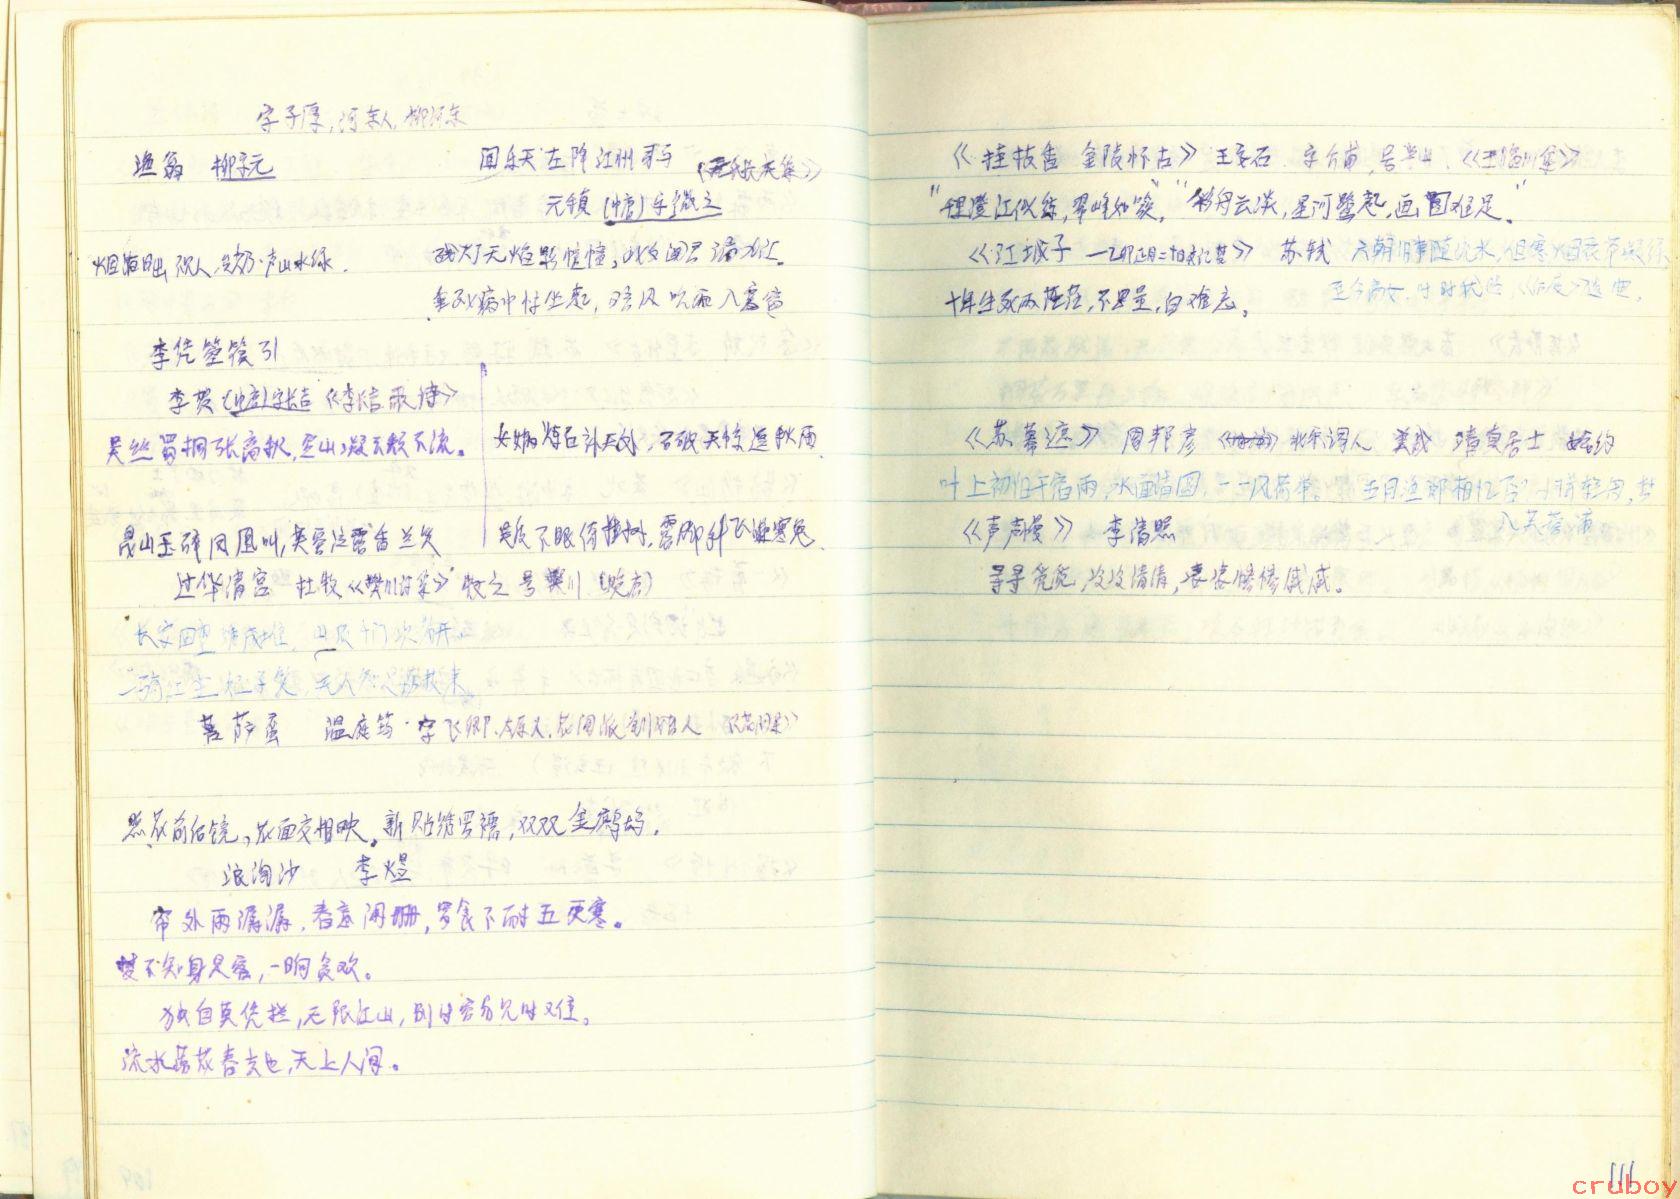 字子厚，河东人，柳河东
渔翁 柳宗元
烟销日出不见人，欸乃一声山水绿．
闻乐天左降江州司马 《元氏长庆集》
元稹（中唐）字微之
残灯无焰影幢幢，此夕闻君谪九江。
垂死病中惊坐起，暗风吹雨入寒窗
李凭箜篌引
李贺（中唐）字长吉《李长吉歌诗》
吴丝蜀桐张高秋，空山凝云颓不流。
昆山玉碎凤凰叫，芙蓉泣露香兰笑
女娲炼石补天处，石破天惊逗秋雨
吴质不眠倚桂树，露脚斜飞湿寒兔．
过华清宫 杜牧《樊川诗集》牧之 号樊川（晚唐）
长安回望绣成堆，山顶千门次第开。
一骑红尘妃子笑，无人知是荔枝来
菩萨蛮 温庭筠·字飞卿．太原人．花间派
照花前后镜，花面交相映。新贴绣罗襦，双双金鹧鸪．
浪淘沙 李煜
帘外雨潺潺．春意阑珊，罗衾不耐五更寒。
梦不知身是客，一晌贪欢。
独自莫凭栏，无限江山，别时容易见时难。
流水落花春去也，天上人间。
《桂枝香 金陵怀古》 王安石．字介甫，号半山．《王临川集》
“千里澄江似练，翠峰如簇”，“彩舟云淡，星河鹭起，画图难足。”
《江城子 一乙卯正月二十日夜记梦》 苏轼 六朝旧事随流水，但寒烟衰草凝绿
至今商女．时时犹唱，《后庭》遗曲．
十年生死两茫茫，不思量，自难忘。
《苏幕遮》 周邦彦 北宋词人 美成 清真居士 婉约
叶上初阳干宿雨，水面清圆，一一风荷举。 五月渔郎相忆否？小楫轻舟，梦
入芙蓉浦
《声声慢》 李清照
寻寻觅觅，冷冷清清，凄凄惨惨戚戚。
111
cruboy